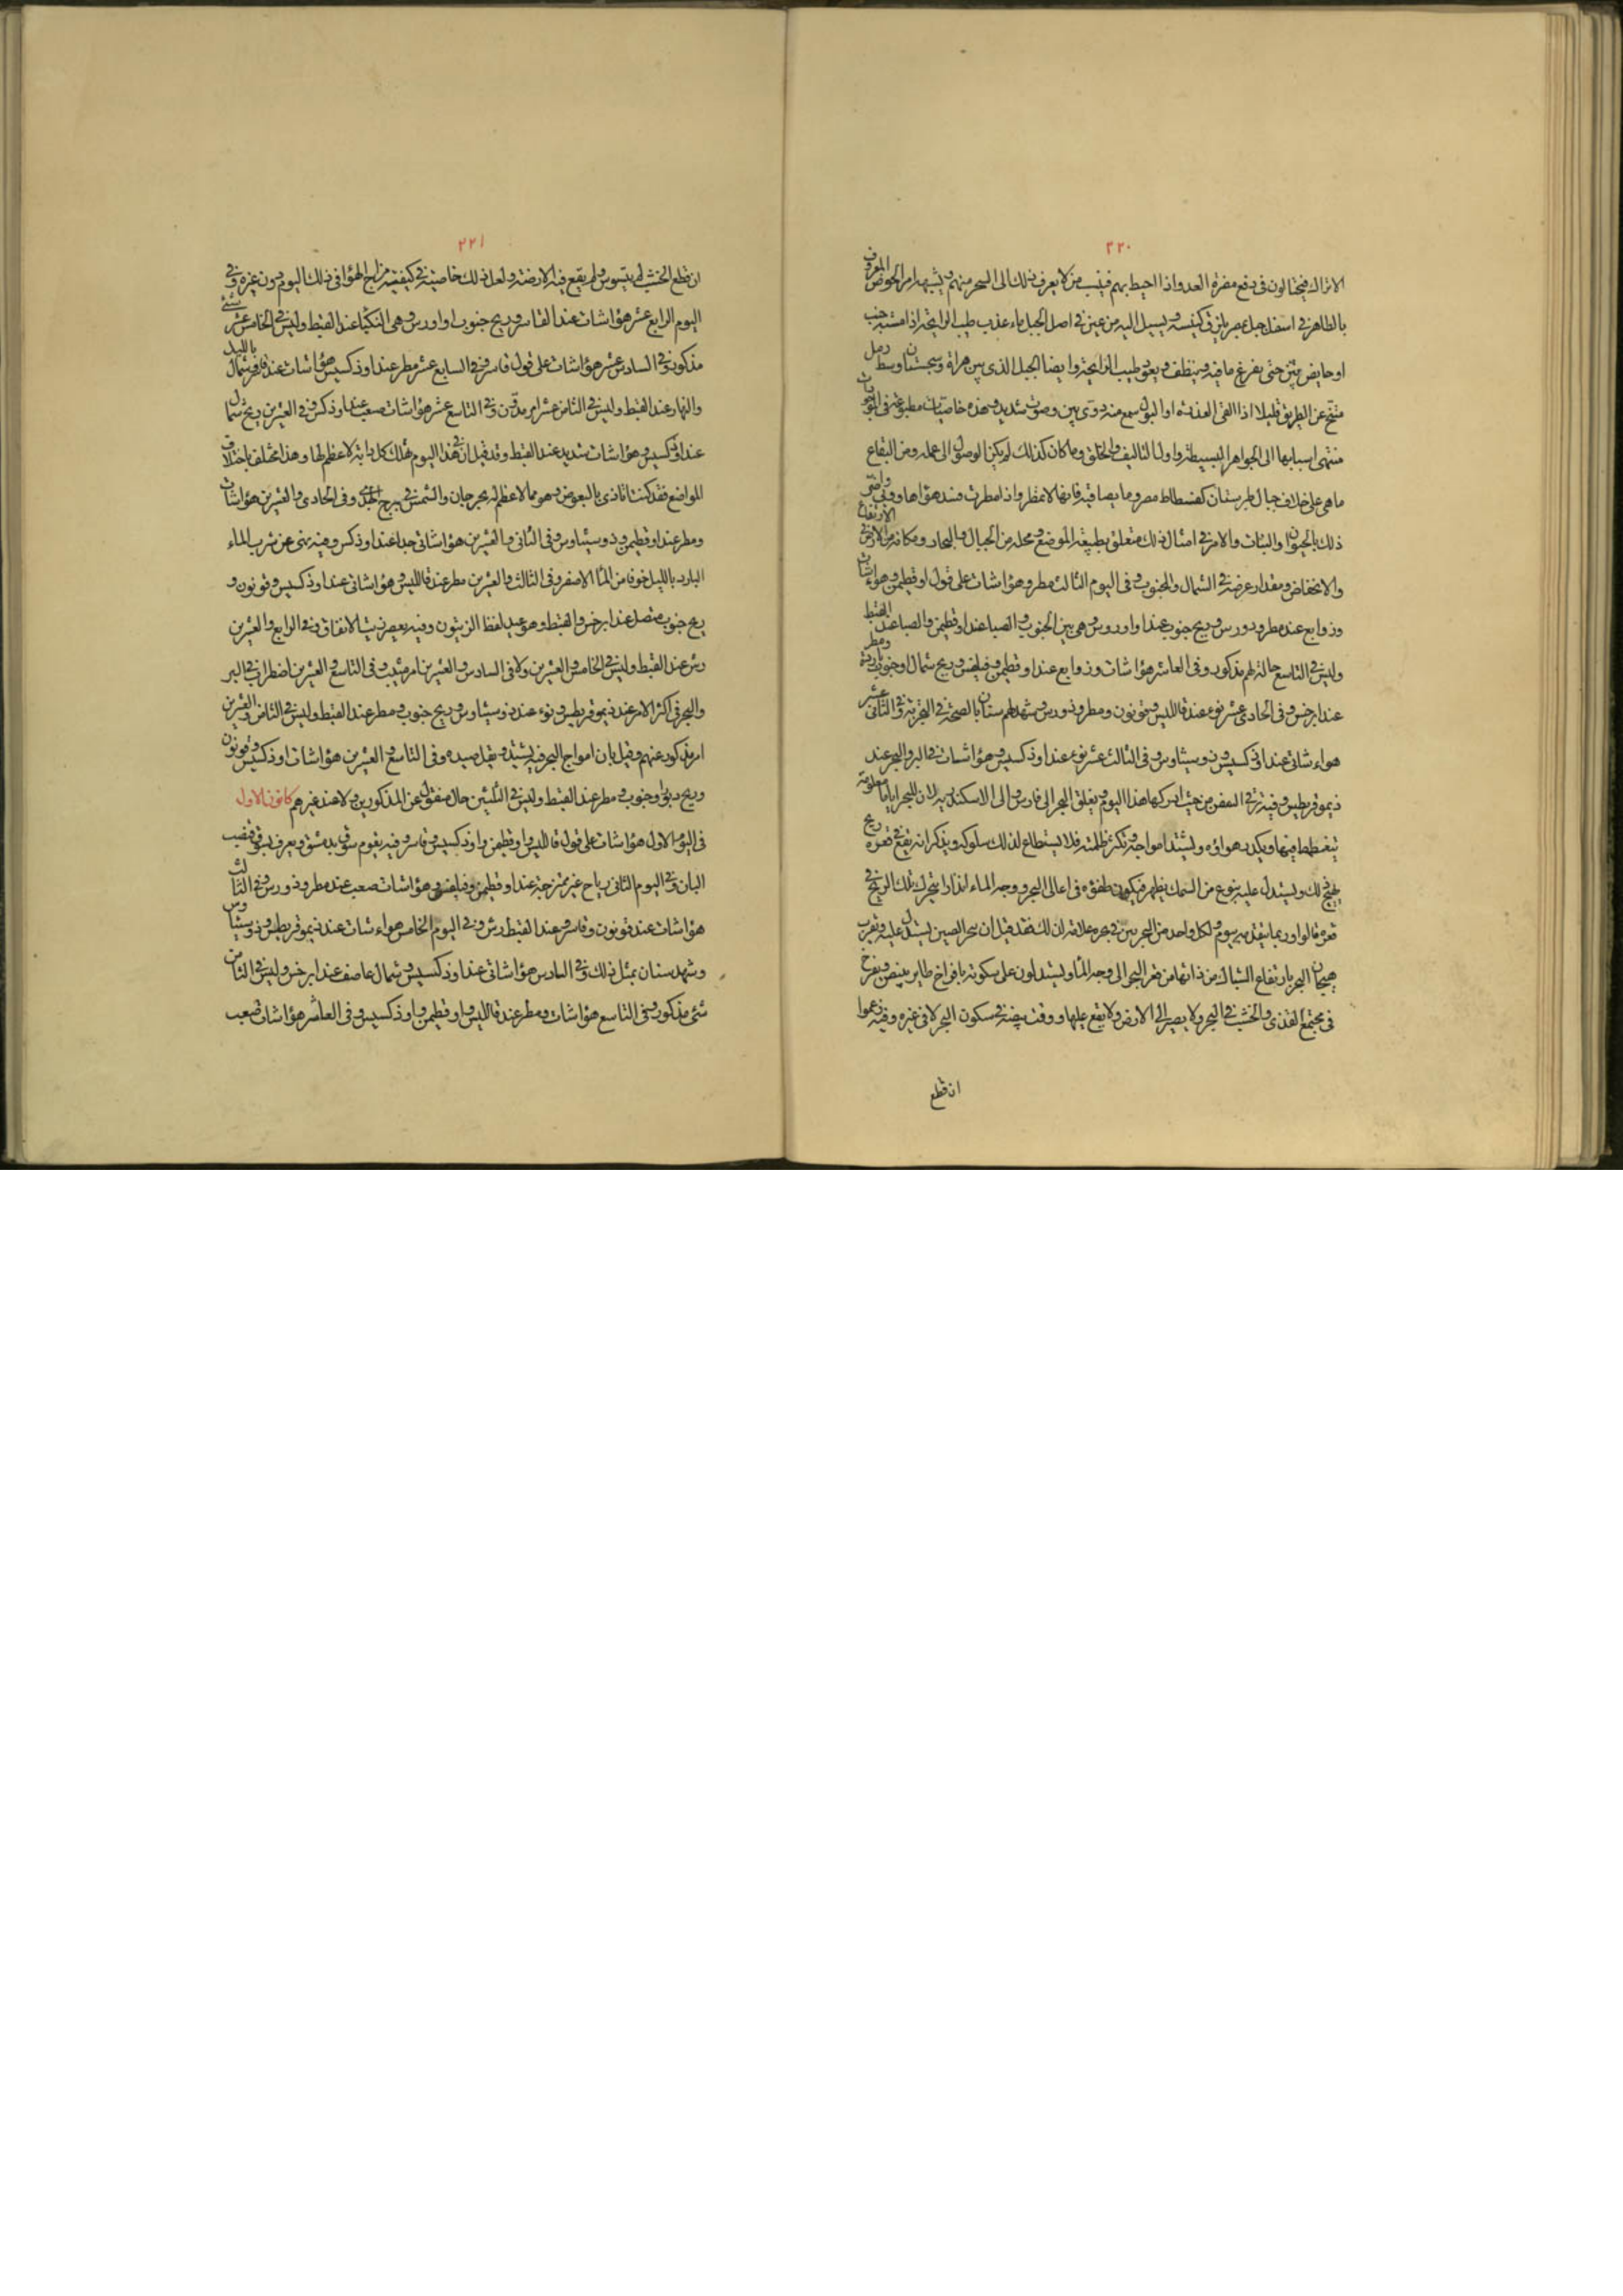 ٢٢٠
الاتراك فيحتالون فى دفع مضرة العدو اذا احيط بهم فينسب من لا يعرف ذلك الى السحر منهم ويشبهه امر الحوض المعروف
بالطاهر فى اسفل جبل بمصر بلزق كنيسة ويسيل اليه من عين فى اصل الجبل ماء عذب طيب الرايحة اذا مسه جنب
او حايض نتن حتى يفرغ ما فيه وينظف ويعود طيب الرايحة وايضا الجبل الذى بين هراة وسجستان وسط رمل
متنح عن الطريق قليلا اذا القى العذرة او البول سمع منه دوى بين وصوت شديد وهذه خاصيات مطبوعة فى
منتهى اسبابها الى الجواهر البسيطة واول التاليف والخلق وما كان كذلك لم يكن الوصول الى علمه ومن البقاع
ما هى على خلاف جبال طبرستان كفسطاط مصر وما يصاقبه فانها لا تمطر واذا مطرت فسد هواها
ذلك بالحيوان والنبات والامر فى امثال ذلك متعلق بطبيعة الموضع ومحله من الجبال والبحار ومكانه من الارض فى الارتفاع
والانخفاض ومقدار عرضه فى الشمال والجنوب وفى اليوم الثالث مطر وهوا شات على قول اوقطيمن وهواء شات
وزوابع عند مطرودورس وريح جنوب عند اودروس وهى بين الجنوب والصبا عند اوقطيمن والصبا عند القبط
وليس فى التاسع حالة لهم مذكورة وفى العاشر هوا شات وزوابع عند اوقطيمن وفيلفس وريح شمال او جنوب باردة ومطر
عند ابرخس وفى الحادى عشر نوء عند قاللبس وقونون ومطرودورس وشهد لهم سنان بالصحة فى التجربة وفى الثانى عشر
هواء شات عند اذكسيس وذوسيثاوس وفى الثالث عشر نوء عند اوذكسيس وهوا شات فى البر والبحر عند
ذيموقريطيس وفيه ترفى السفن من حيث ادركها هذا اليوم ويغلق البحر الى فارس والى الاسكندرية لان للبحر اياما معلومة
يتغطمط فيها ويكدر هواؤه ويشتد امواجه وتكثر ظلمته فلا يستطاع لذلك سلوكه ويذكر انه يقع فى قعره ريح
يهيج ذلك ويستدل عليه بنوع من السمك يظهر فيكون طفؤه فى اعالى البحر ووجه الماء انذارا بتحرك تلك الريح فى
قعره قالوا وربما يتقدمه بيوم ولكل واحد من البحرين فى غيره علامة لذلك فقد قيل ان بحر الصين يستدل عليه وبقرب
هيجان البحر بارتفاع الشباك من ذاتها من قعر البحر الى وجه الماء ويستدلون على سكونه بافراخ طاير يبيض ويفرخ
فى مجتمع القذى والخشب فى البحر ولا يصير الى الارض ولا يقع عليها ووقت بيضه فى سكون البحر لا فى غيره وفيه زعموا
ان قطع
٢٢١
ان قطع الخشب لم يتسوس ولم يقع فيه الارضة ولعل ذلك خاصية فى كيفية مزاج الهوا فى ذلك اليوم دون غيره وفى
اليوم الرابع عشر هوا شات عند القاسر وريح جنوب او اورس وهى النكبا عند القبط وليس فى الخامس عشر شئ
مذكور وفى السادس عشر هوا شات على قول قاسر وفى السابع عشر مطر عند اوذكسيس وهوا شات عند قاسر وشمال بالليل
والنهار عند القبط وليس فى الثامن عشر امر مدون وفى التاسع عشر هوا شات صعب عند اوذكس وفى العشرين ريح شمال
عند اذكسيس وهوا شات شديد عند القبط وقد قيل ان فى هذا اليوم تهلك كل دابة لا عظم لها وهذا مختلف باختلاف
المواضع فقد كنت اتاذى بالبعوض وهو مما لا عظم له بجرجان والشمس فى برج الجدى وفى الحادى والعشرين هوا شات
ومطر عند اوقطيمن وذوسيثاوس وفى الثانى والعشرين هوا شاتى جدا عند اوذكس وفيه ينهى عن شرب الماء
البارد بالليل خوفا من الماء الاصفر وفى الثالث والعشرين مطر عند قاللبس وهوا شاتى عند اوذكسيس وقونون و
ريح جنوب متصل عند ابرخس والقبط وهو عيد لقط الزيتون وفيه يعصر زيت الانفاق وفى الرابع والعشرين
رش عند القبط وليس فى الخامس والعشرين ولا فى السادس والعشرين امر مثبت وفى التاسع والعشرين اضطراب فى البر
والبحر فى اكثر الامر عند ذيموقريطيس ونوء عند ذوسيثاوس وريح جنوب ومطر عند القبط وليس فى الثامن والعشرين
امر مذكور عنهم وقيل بان امواج البحر فيه يشتد ويقل صيده وفى التاسع والعشرين هوا شات اوذكسيس وقونون
وريح دبور او جنوب ومطر عند القبط وليس فى الثلثين حال منقول عن المذكورين ولا عند غيرهم كانون الاول
فى اليوم الاول هوا شات على قول قاللبس واوقطيمن واوذكسيس وقاسر وفيه يقوم سوق بدمشق ويعرف بسوق قضيب
البان وفى اليوم الثانى رياح غير ممتزجة عند اوقطيمن وفيلفس وهوا شات صعب عند مطرودورس وفى الثالث
هوا شات عند قونون وقاسر وعند القبط رش وفى اليوم الخامس هواء شات عند ذيموقريطس وذوسيثاوس
وشهد سنان بمثل ذلك وفى السادس هوا شاتى عند اوذكسيس وشمال عاصف عند ابرخس وليس فى الثامن
شئ مذكور وفى التاسع هوا شات ومطر عند قاللبس واوقطيمن واوذكسيس وفى العاشر هوا شات صعب